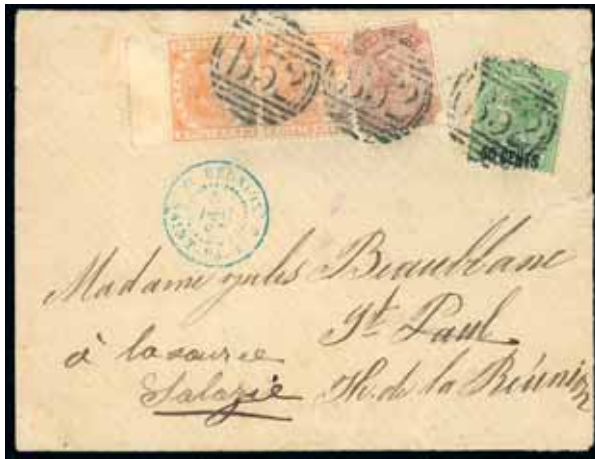 B52 B52 B52
50 CENTS
Madame Jules Beaublanc
St. Paul
à la source
Salazie
Ile de la Réunion